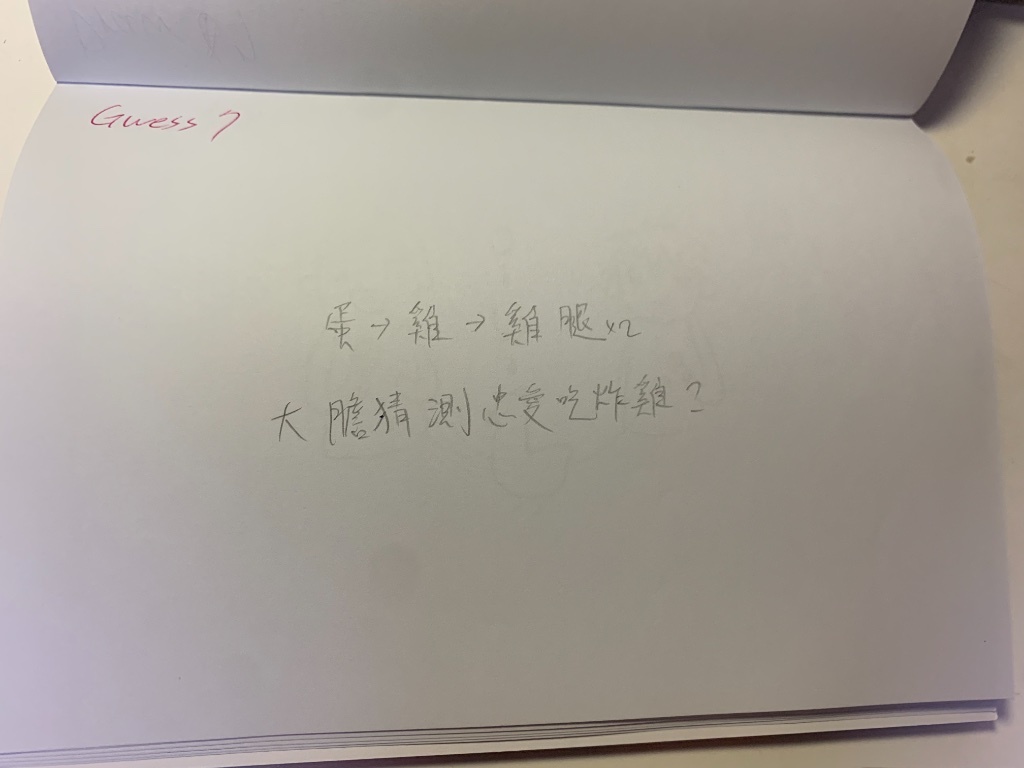 Guess 7
蛋→雞→雞腿x2
大膽猜測忠愛吃炸雞?